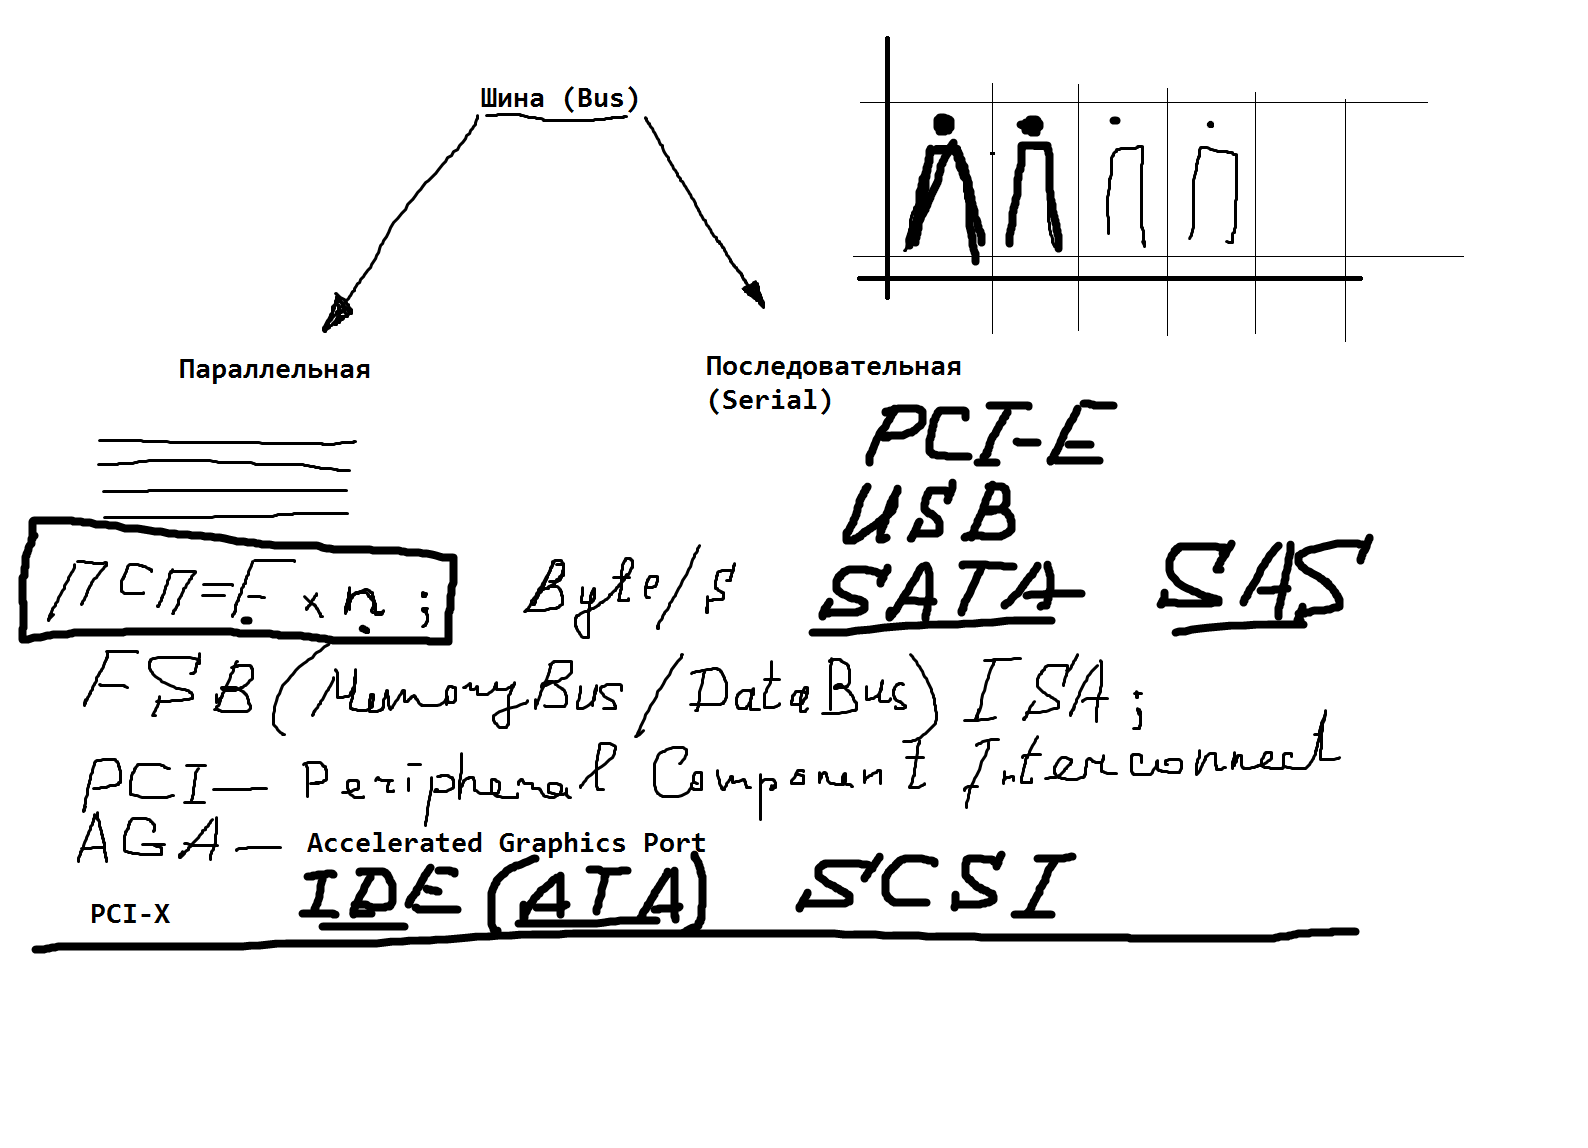 Шина (Bus)
Параллельная
Последовательная
(Serial)
PCI-E
USB
SATA SAS
ПСП=F x n; Byte/s
FSB (MemoryBus/DataBus) ISA;
PCI— Peripheral Component Interconnect
AGA— Accelerated Graphics Port
PCI-X IDE (ATA) SCSI